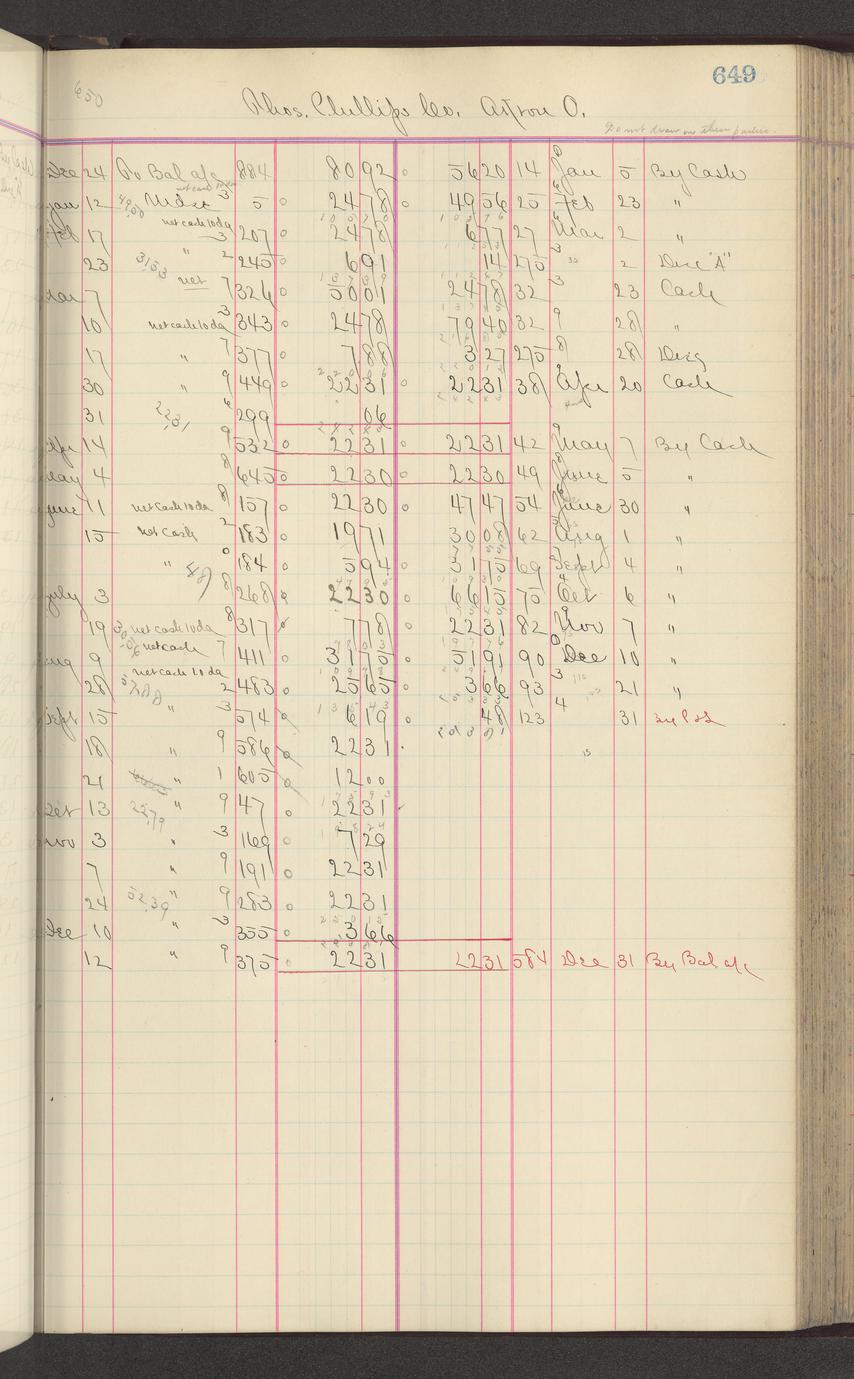 649
650
Thos. Phillips Co. Akron O.
Do not draw on these parties.
Dec 24 To Bal a/c 884 80 92 56 20 14 Jan 5 By Cash
Jan 12 Mdse 3 5 24 78 49 56 25 Feb 23 "
Feb 17 net cash 10 da 3 207 24 78 6 77 27 Mar 2 "
23 " 2 245 6 91 14 275 " 2 Disc "A"
Mar 7 net 7 326 50 01 24 78 32 23 Cash
10 net cash 10 da 3 343 24 78 79 40 32 28 "
17 " 7 377 7 88 3 27 275 28 Disc
30 " 9 449 22 31 22 31 38 Apr 20 Cash
31 " 299 06
Apr 14 9 532 22 31 22 31 42 May 7 By Cash
May 4 8 645 22 30 22 30 49 June 5 "
June 11 net cash 10 da 8 157 22 30 47 47 54 June 30 "
15 net cash 2 183 19 71 30 08 62 Aug 1 "
" 0 184 5 94 31 75 69 Sept 4 "
July 3 8 268 22 30 66 15 75 Oct 6 "
19 net cash 10 da 8 317 7 78 22 31 82 Nov 7 "
Aug 9 net cash 7 411 31 75 51 91 90 Dec 10 "
28 net cash 10 da 2 483 25 65 3 66 93 21 "
Sept 15 " 3 574 6 19 48 123 31
18 " 9 586 22 31
21 " 1 605 12 00
Oct 13 " 9 47 22 31
Nov 3 " 3 169 7 29
7 " 9 191 22 31
24 " 9 283 22 31
Dec 10 " 3 355 3 66
12 " 9 375 22 31 22 31 584 Dec 31 By Bal a/c